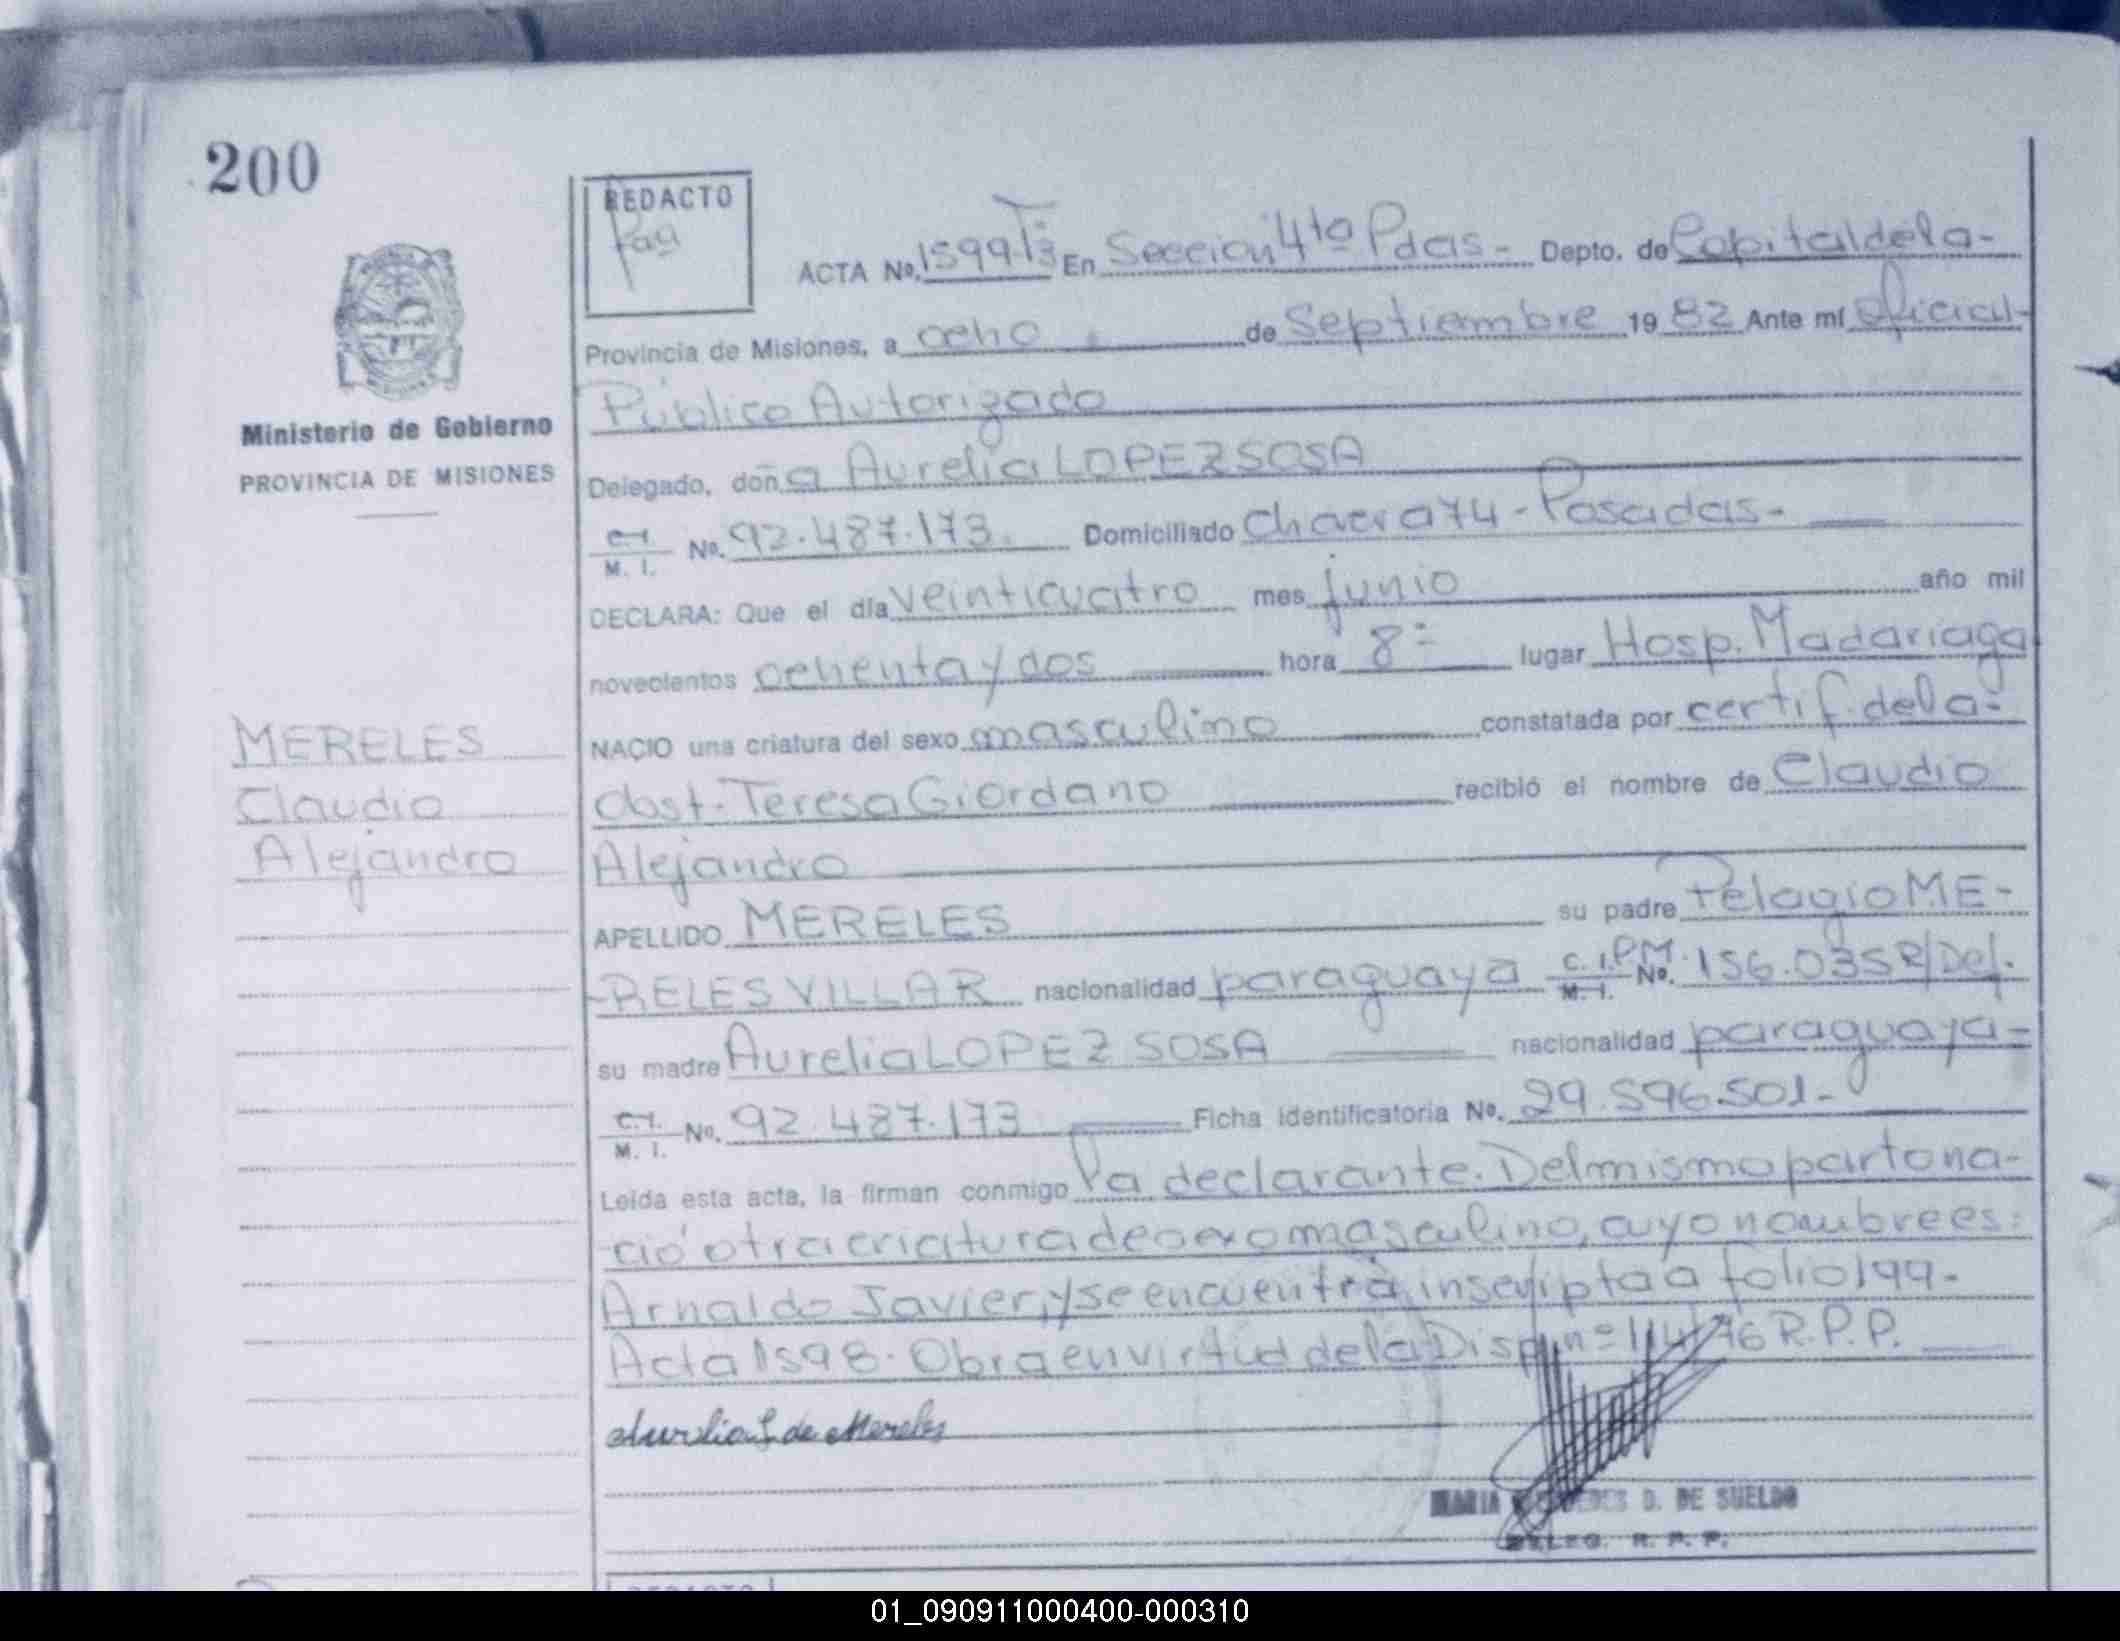 200
REDACTO
ACTA No. 1599 T:3 En Seccion 4ta Pdas- Depto. de Capital de la-
Provincia de Misiones, a ocho de Septiembre 1982 Ante mí Oficial-
Público Autorizado
Delegado, doña Aurelia LOPEZ SOSA
C.I. M. I. No. 92.487.173. Domiciliado Chacra 74 - Posadas-
DECLARA: Que el día veinticuatro mes junio año mil
novecientos ochenta y dos hora 8 lugar Hosp. Madariaga
NACIO una criatura del sexo masculino constatada por certif. de la-
Obst. Teresa Giordano recibió el nombre de Claudio
Alejandro
APELLIDO MERELES su padre Pelagio ME-
-RELES VILLAR nacionalidad paraguaya C. I. M. I. No. P.M. 156.035 R/Def.
su madre Aurelia LOPEZ SOSA nacionalidad paraguaya-
C.I. M. I. No. 92.487.173 Ficha identificatoria No. 29.596.501-
Leída esta acta, la firman conmigo la declarante. Del mismo parto na-
ció otra criatura de sexo masculino, cuyo nombre es:
Arnaldo Javier, y se encuentra inscripta a folio 199-
Acta 1598. Obra en virtud de la Disp. nº 114/76 R.P.P.
Aurelia L de Mereles
MARIA D. DE SUELDO
DELEG. R. P. P.
Ministerio de Gobierno
PROVINCIA DE MISIONES
MERELES
Claudio
Alejandro
01_090911000400-000310